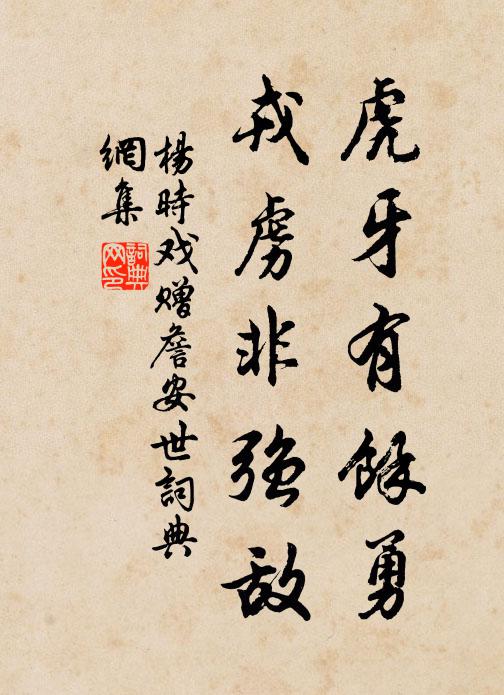 虎牙有餘勇
戎虜非強敵
楊時戏贈詹安世詞典
網集
詞典網印